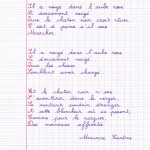 Il a neigé dans l'aube rose
Si doucement neigé
Que le chaton noir croit rêver.
C'est à peine s'il ose
Marcher.
Il a neigé dans l'aube rose
Si doucement neigé
Que les choses
Semblent avoir changé.
Et le chaton noir n'ose
S'aventurer dans le verger,
Se sentant soudain étranger
À cette blancheur où se posent,
Comme pour le narguer,
Des moineaux effrontés.
Maurice Carême